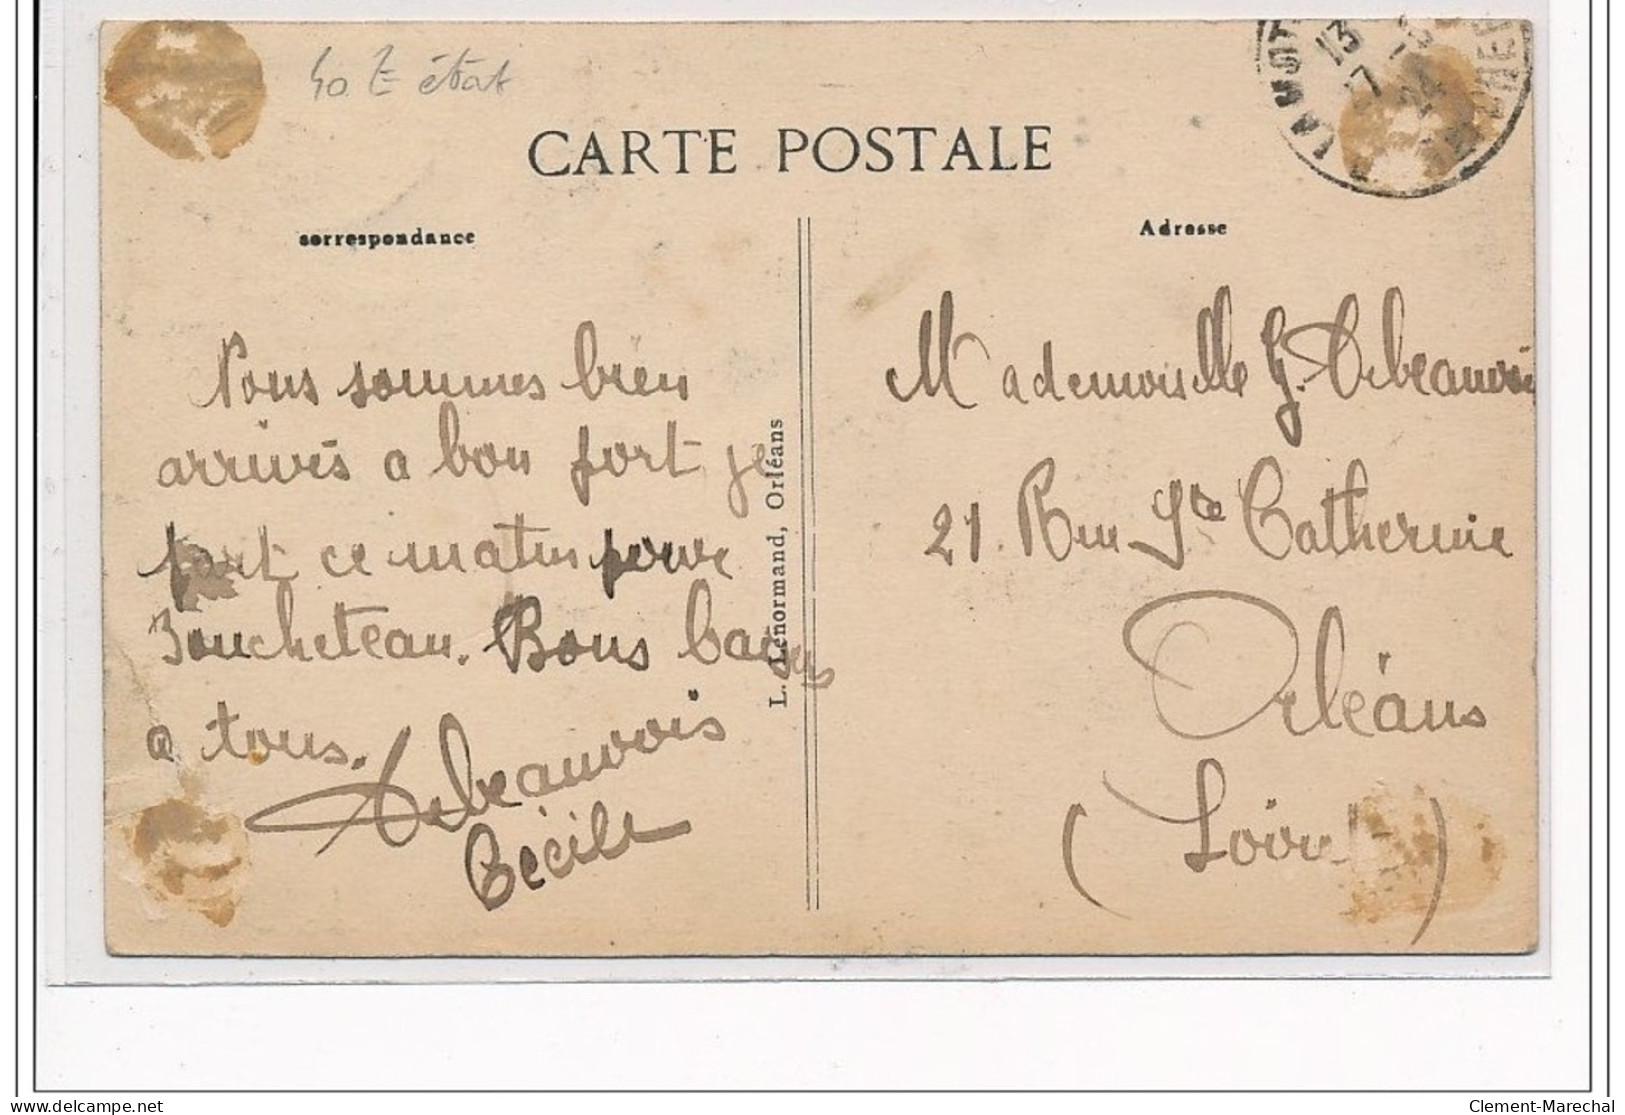 40 E état
CARTE POSTALE
correspondance
Adresse
Nous sommes bien
arrivés a bon port je
part ce matin pour
Boucheteau. Bons baisers
a tous.
Arbeauvois
Cécile
L. Lenormand, Orléans
Mademoiselle G. Arbeauvois
21. Rue Ste Catherine
Orléans
(Loiret)
13
17
24
Clement-Marechal